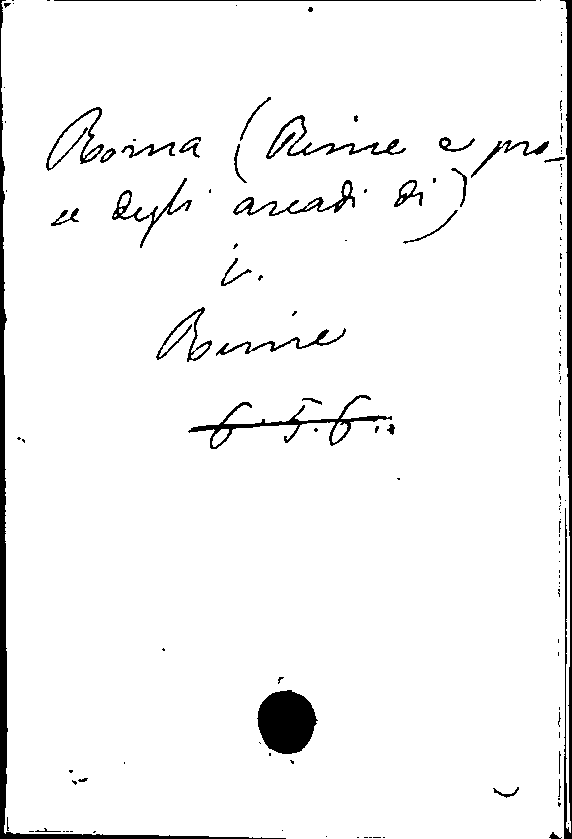 Roma (Rime e pro-
se degli arcadi di)
v.
Rime
6.5.6..